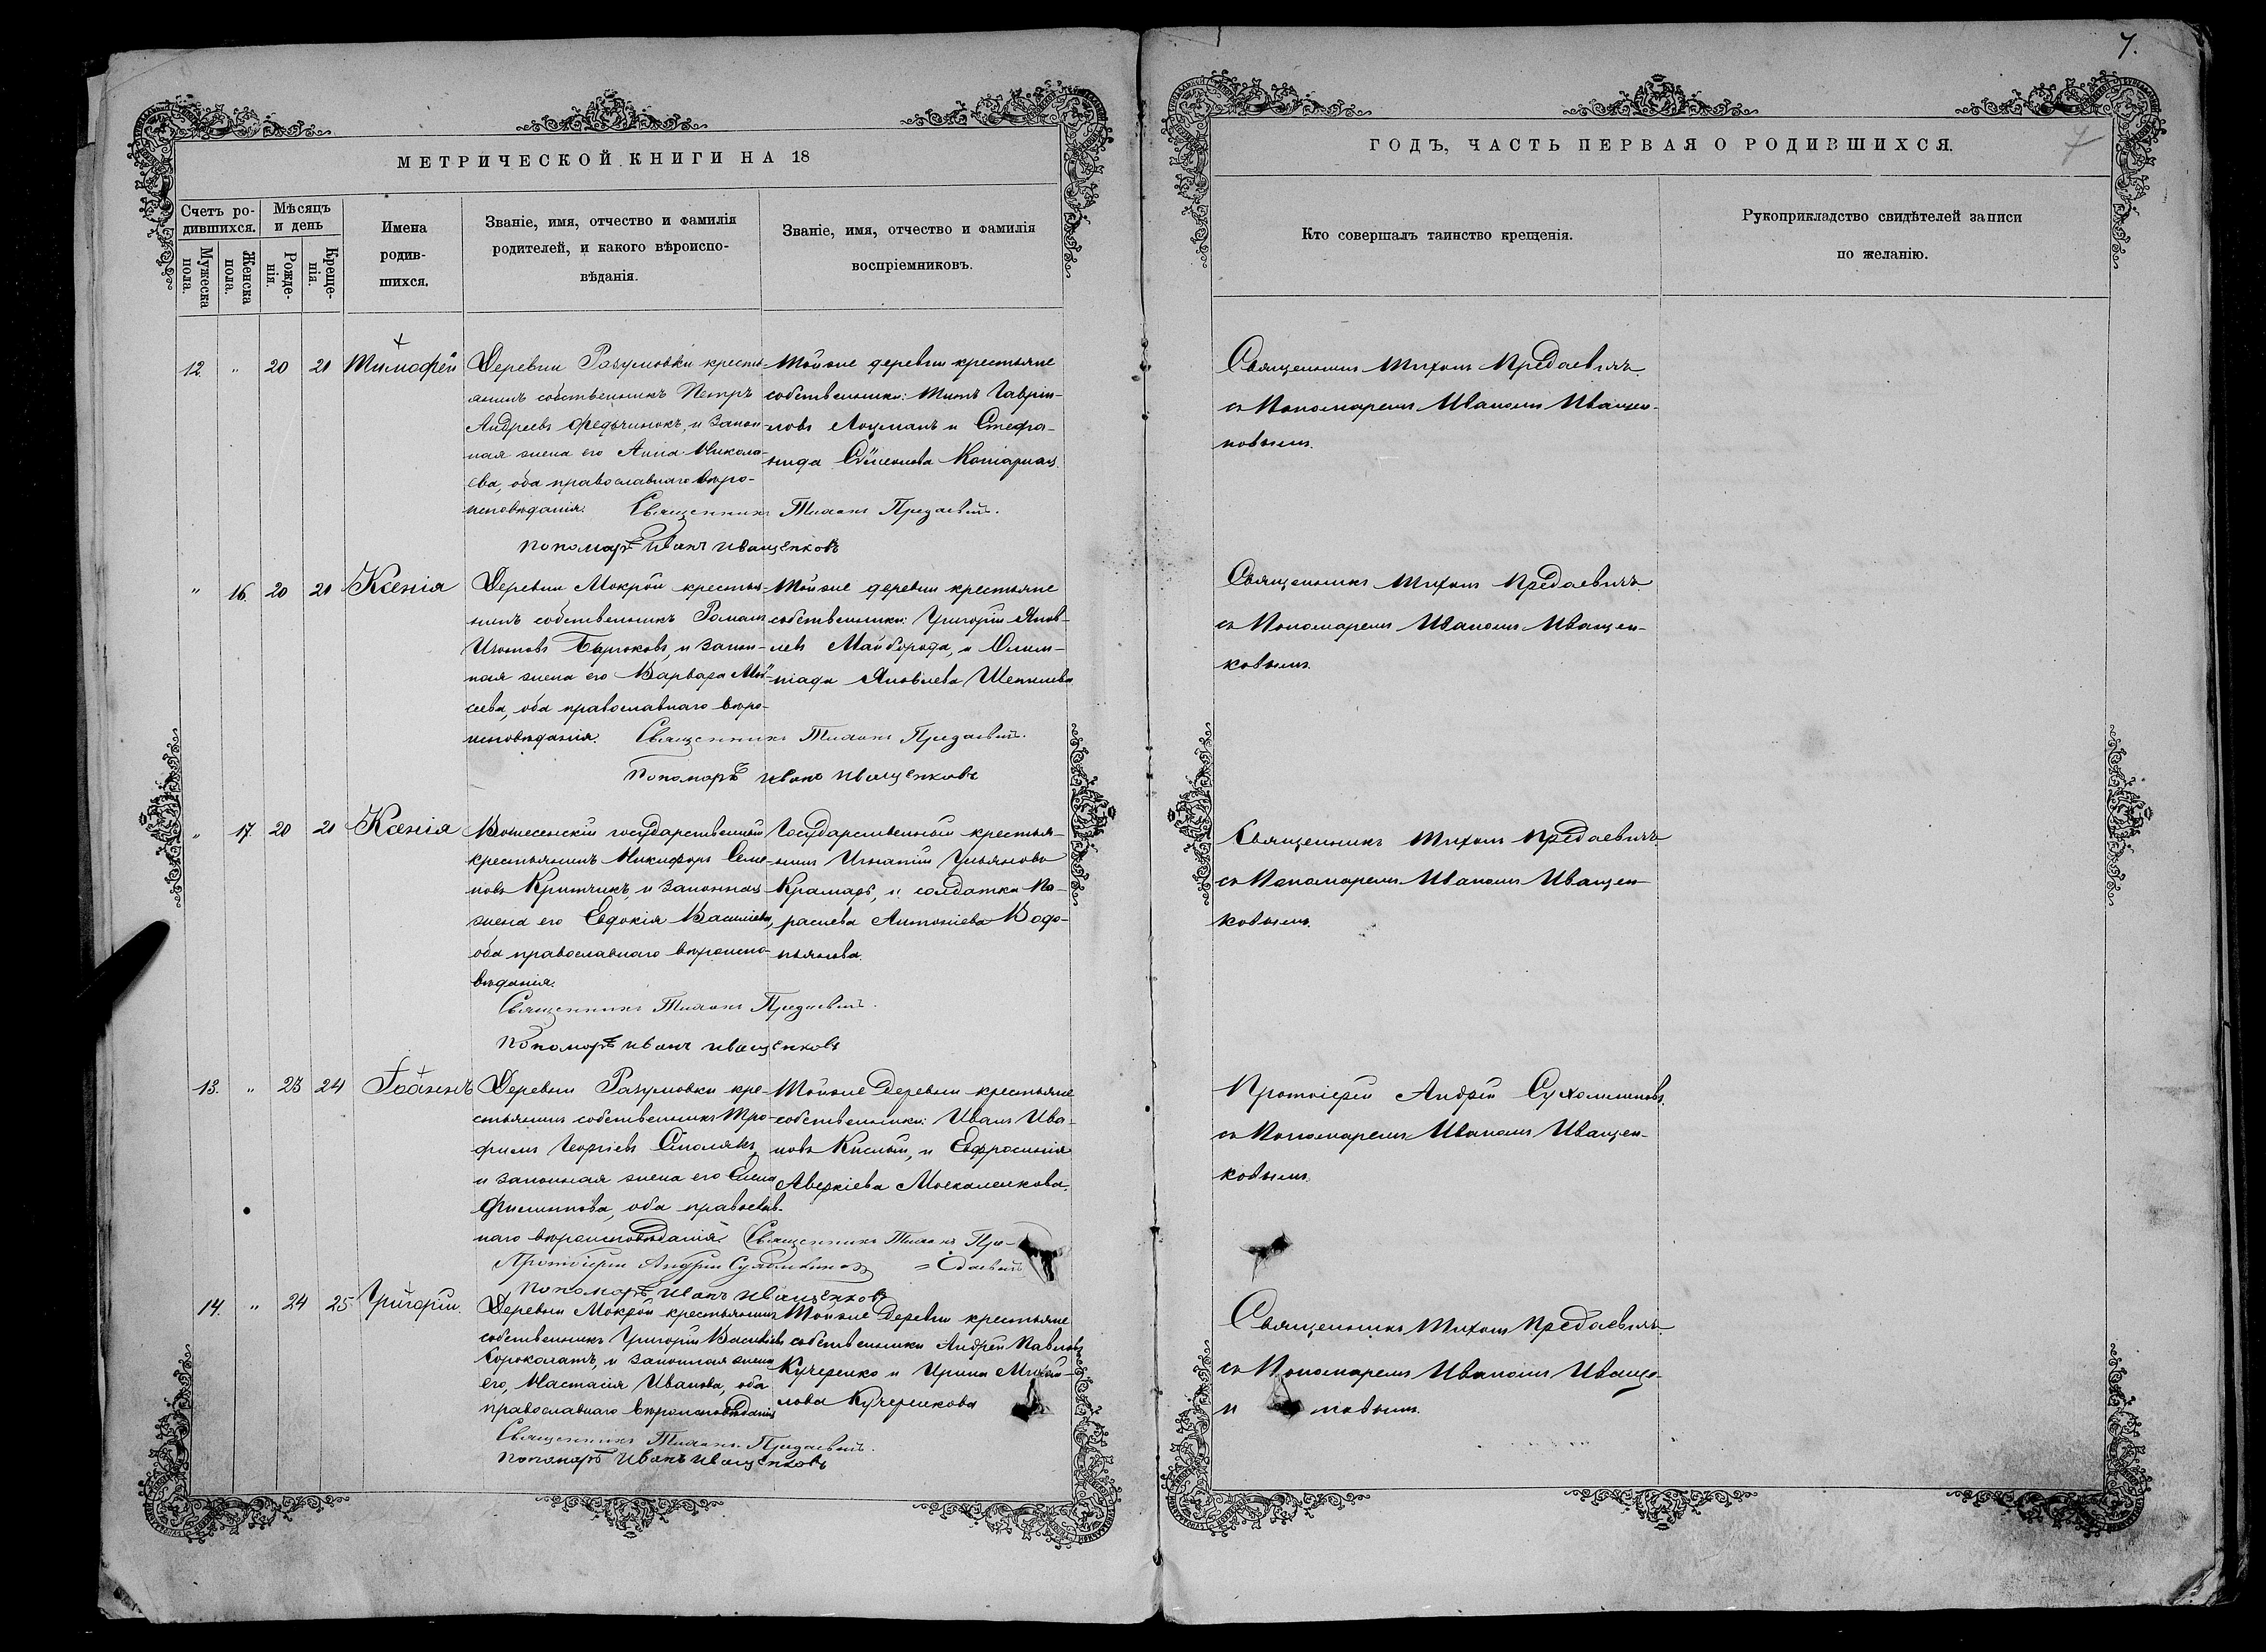 7.
7
МЕТРИЧЕСКОЙ КНИГИ НА 18
ГОДЪ, ЧАСТЬ ПЕРВАЯ О РОДИВШИХСЯ.
Счетъ ро-
дившихся.
Мужеска
пола.
Женска
пола.
Мѣсяцъ
и день
Рожде-
нія.
Креще-
нія.
Имена
родив-
шихся.
Званіе, имя, отчество и фамилія
родителей, и какого вѣроиспо-
вѣданія.
Званіе, имя, отчество и фамилія
воспріемниковъ.
Кто совершалъ таинство крещенія.
Рукоприкладство свидѣтелей записи
по желанію.
12. " 20 21 Тимофей
Деревни Разумовки кресть-
янинъ собственникъ Петръ
Андреевъ и закон-
ная жена его Анна Никола-
ева, оба православнаго вѣро-
исповѣданія. Священникъ Тихонъ Предаевичъ.
Пономарь Иванъ Иващенковъ
Тойже деревни крестьяне
собственники: Титъ Гаврiи-
ловъ Лоцманъ и Стефа-
нида
Священникъ Тихонъ Предаевичъ
съ Пономаремъ Иваномъ Иващен-
ковымъ.
" 16. 20 21 Ксенія
Деревни Мокрой крестья-
нинъ собственникъ Романъ
и закон-
ная жена его Варвара Мои-
сеева, оба православнаго вѣро-
исповѣданія. Священникъ Тихонъ Предаевичъ.
Пономарь Иванъ Иващенковъ
Тойже деревни крестьяне
собственники: Григорій Яков-
левъ Майборода, и Олим-
піада Яковлева
Священникъ Тихонъ Предаевичъ
съ Пономаремъ Иваномъ Иващен-
ковымъ.
" 17. 20 21 Ксенія
Вознесенскій государственный
крестьянинъ Никифоръ Семе-
новъ и законная
жена его Евдокія Василіева,
оба православнаго вѣроиспо-
вѣданія.
Священникъ Тихонъ Предаевичъ.
Пономарь Иванъ Иващенковъ
Государственный крестья-
нинъ Игнатій Ульяновъ
Крамарь, и солдатка Па-
раскева Антоніева Водо-
пьянова.
Священникъ Тихонъ Предаевичъ
съ Пономаремъ Иваномъ Иващен-
ковымъ.
13. " 23 24 Іоаннъ
Деревни Разумовки кре-
стьянинъ собственникъ Тро-
фимъ Георгіевъ Столякъ,
и законная жена его Елена
Филиппова, оба православ-
наго вѣроисповѣданія. Священникъ Тихонъ Пре-
Протоіерей Андрей Сухомлиновъ =даевичъ
Пономарь Иванъ Иващенковъ
Тойже Деревни крестьяне
собственники: Иванъ Ива-
новъ Кислый, и Евфросинія
Аверкіева Москаленкова.
Протоіерей Андрей Сухомлиновъ
съ Пономаремъ Иваномъ Иващен-
ковымъ.
14. " 24 25 Григорій.
Деревни Мокрой крестьянинъ
собственникъ Григорій Василіевъ
и законная жена
его, Настасія Иванова, оба
православнаго вѣроисповѣданія
Священникъ Тихонъ Предаевичъ.
Пономарь Иванъ Иващенковъ
Тойже Деревни крестьяне
собственники Андрей Павловъ
Кучеренко и Ирина Михай-
лова Кучеренкова
Священникъ Тихонъ Предаевичъ
съ Пономаремъ Иваномъ Иваще-
н ковымъ